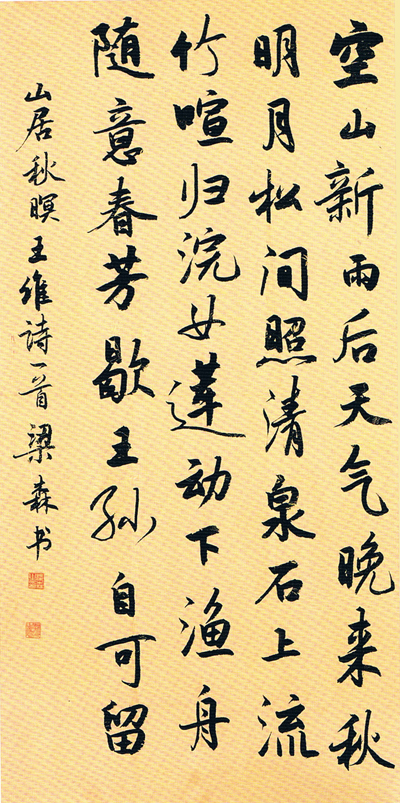 空山新雨后天气晚来秋
明月松间照清泉石上流
竹喧归浣女莲动下渔舟
随意春芳歇王孙自可留
山居秋暝王维诗一首梁森书